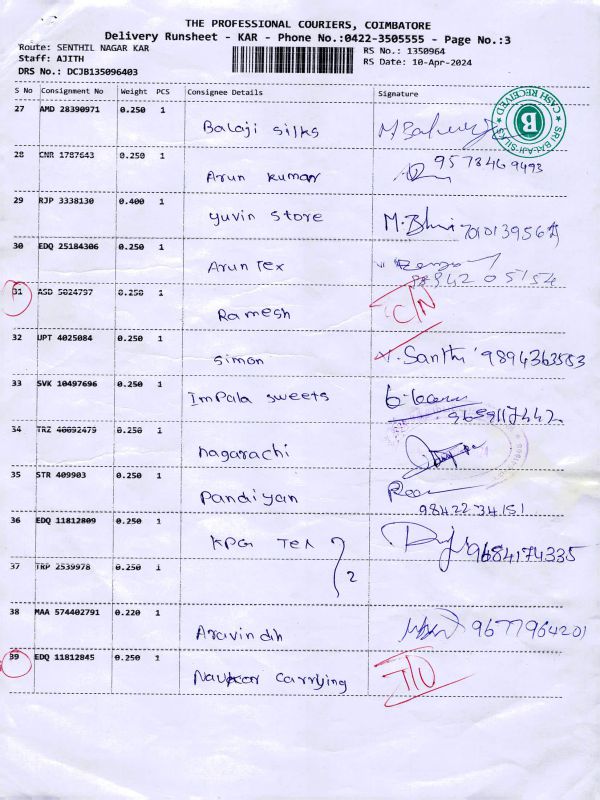 THE PROFESSIONAL COURIERS, COIMBATORE
Delivery Runsheet - KAR - Phone No.:0422-3505555 - Page No.:3
Route: SENTHIL NAGAR KAR
Staff: AJITH
DRS No.: DCJB135096403
RS No.: 1350964
RS Date: 10-Apr-2024
S No Consignment No Weight PCS Consignee Details Signature
27 AMD 28390971 0.250 1
Balaji silks
SRI BALAJI SILKS
B
CASH RECEIVED
28 CNR 1787643 0.250 1
Arun kumar 9573469493
29 RJP 3338130 0.400 1
yuvin store
30 EDQ 25184306 0.250 1
Arun Tex
31 ASD 5024797 0.250 1
Ramesh C/N
32 UPT 4025084 0.250 1
simon Santhi 9894363553
33 SVK 10497696 0.250 1
ImPala sweets
9659117442
34 TRZ 40692479 0.250 1
nagarachi
35 STR 409903 0.250 1
Pandiyan
9842234151
36 EDQ 11812809 0.250 1
KPG Tex 9684174335
37 TRP 2539978 0.250 1
2
38 MAA 574402791 0.220 1
Aravindh 9677964201
39 EDQ 11812845 0.250 1
carrying